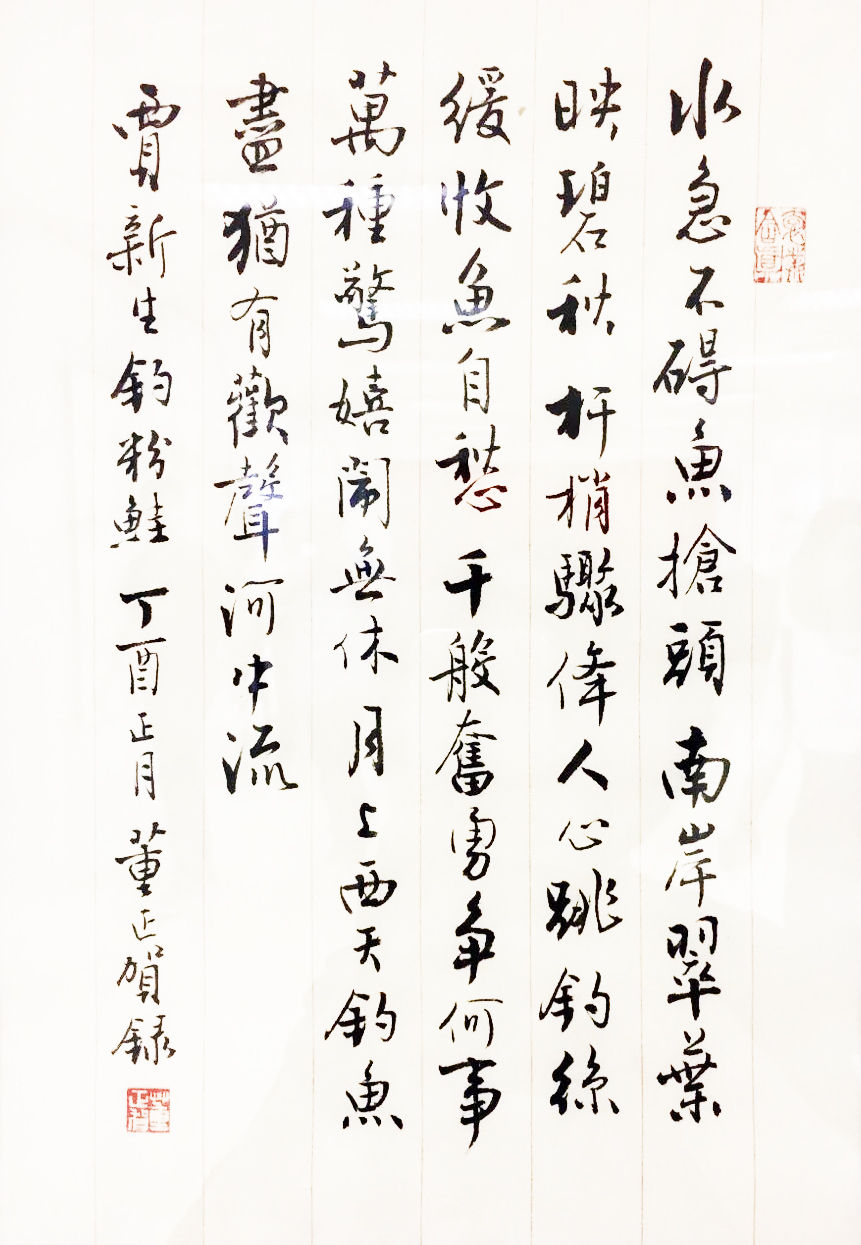 水急不碍魚搶頭南岸翠葉
映碧秋杆梢驟俸人心跳釣絲
緩收魚自愁千般奮勇爭何事
萬種驚嬉鬧無休月上西天釣魚
盡猶有歡聲河中流
賈新生釣粉鮭丁酉正月董正賀錄
董正賀